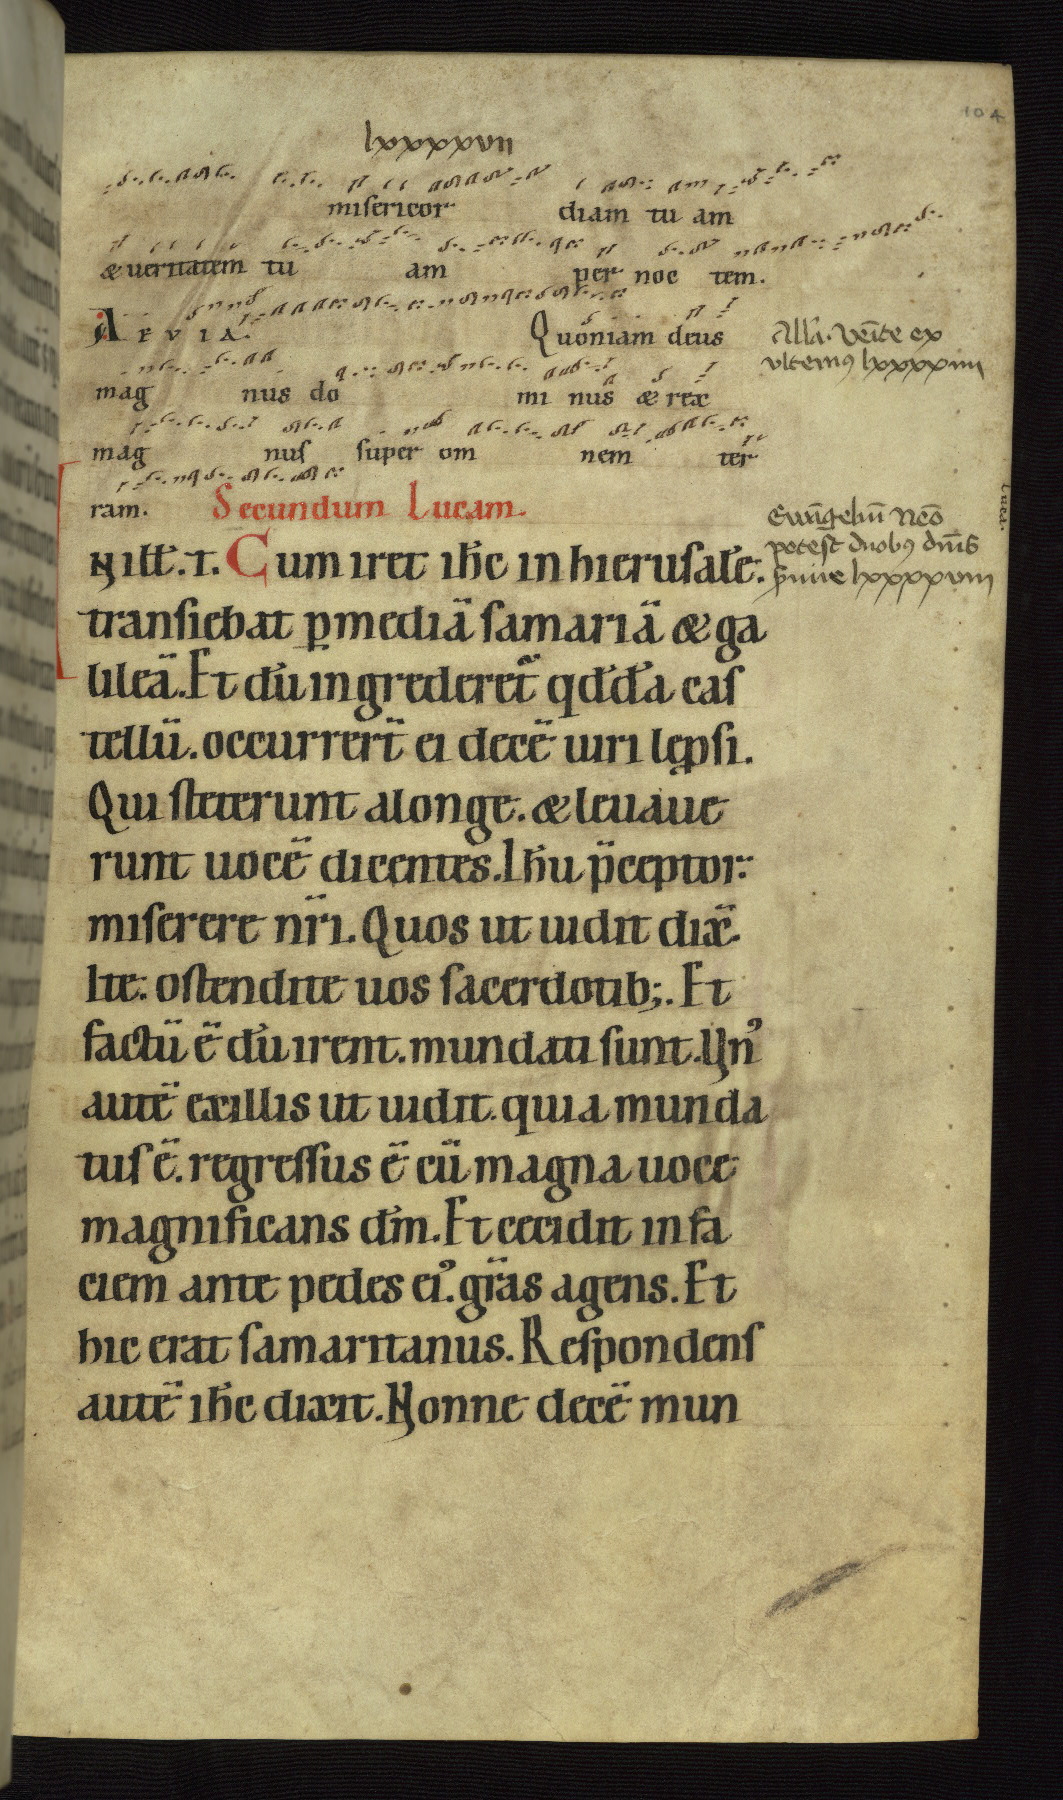 104
lxxxxvii
misericor diam tu am
& ueritatem tu am per noc tem.
AEVIA. Quoniam deus
mag nus do mi nus & rex
mag nus super om nem ter
ram. Secundum Lucam.
Alla. Venite ex
ultemꝰ lxxxxiiii
Luca.
Evāngeliū Nēo
potest duobꝰ dn̄is
ẜuire lxxxxviii
N ill̄. T. Cum iret ih̄c in hierusal̄e.
transiebat ꝑ mediā samariā & ga
lileā. Et dū ingrederet̄ qdd̄a cas
tellū. occurrer̄t ei decē uiri lepsi.
Qui steterunt alonge. & leuaue
runt uocē dicentes. Ih̄u p̄ceptor.
miserere nr̄i. Quos ut uidit dix̄.
Ite. ostendite uos sacerdotib;. Et
factū ē dū irent. mundati sunt. Unꝰ
autē exillis ut uidit. quia munda
tus ē. regressus ē cū magna uoce
magnificans dm̄. Et cecidit in fa
ciem ante pedes eiꝰ. gr̄as agens. Et
hic erat samaritanus. Respondens
autē ih̄c dixit. Nonne decē mun